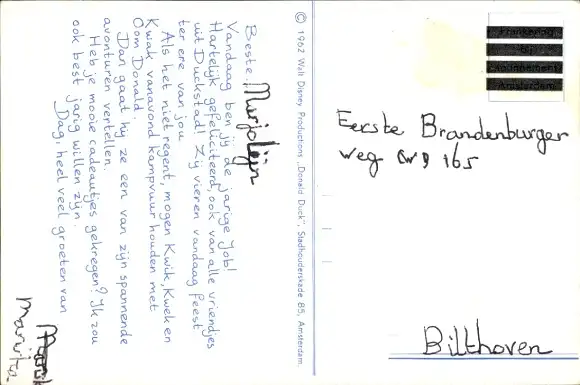 Beste Marjolijn
Vandaag ben jij de jarige Job!
Hartelijk gefeliciteerd, ook van alle vriendjes
uit Duckstad! Zij vieren vandaag feest
ter ere van jou.
Als het niet regent, mogen Kwik, Kwek en
Kwak vanavond kampvuur houden met
Oom Donald.
Dan gaat hij ze een van zijn spannende
avonturen vertellen.
Heb je mooie cadeautjes gekregen? Ik zou
ook best jarig willen zijn.
Dag, heel veel groeten van
© 1962 Walt Disney Productions „Donald Duck", Stadhouderskade 85, Amsterdam.
Frankering
bij
Abonnement
Amsterdam
Eerste Brandenburger
weg 165
Bilthoven